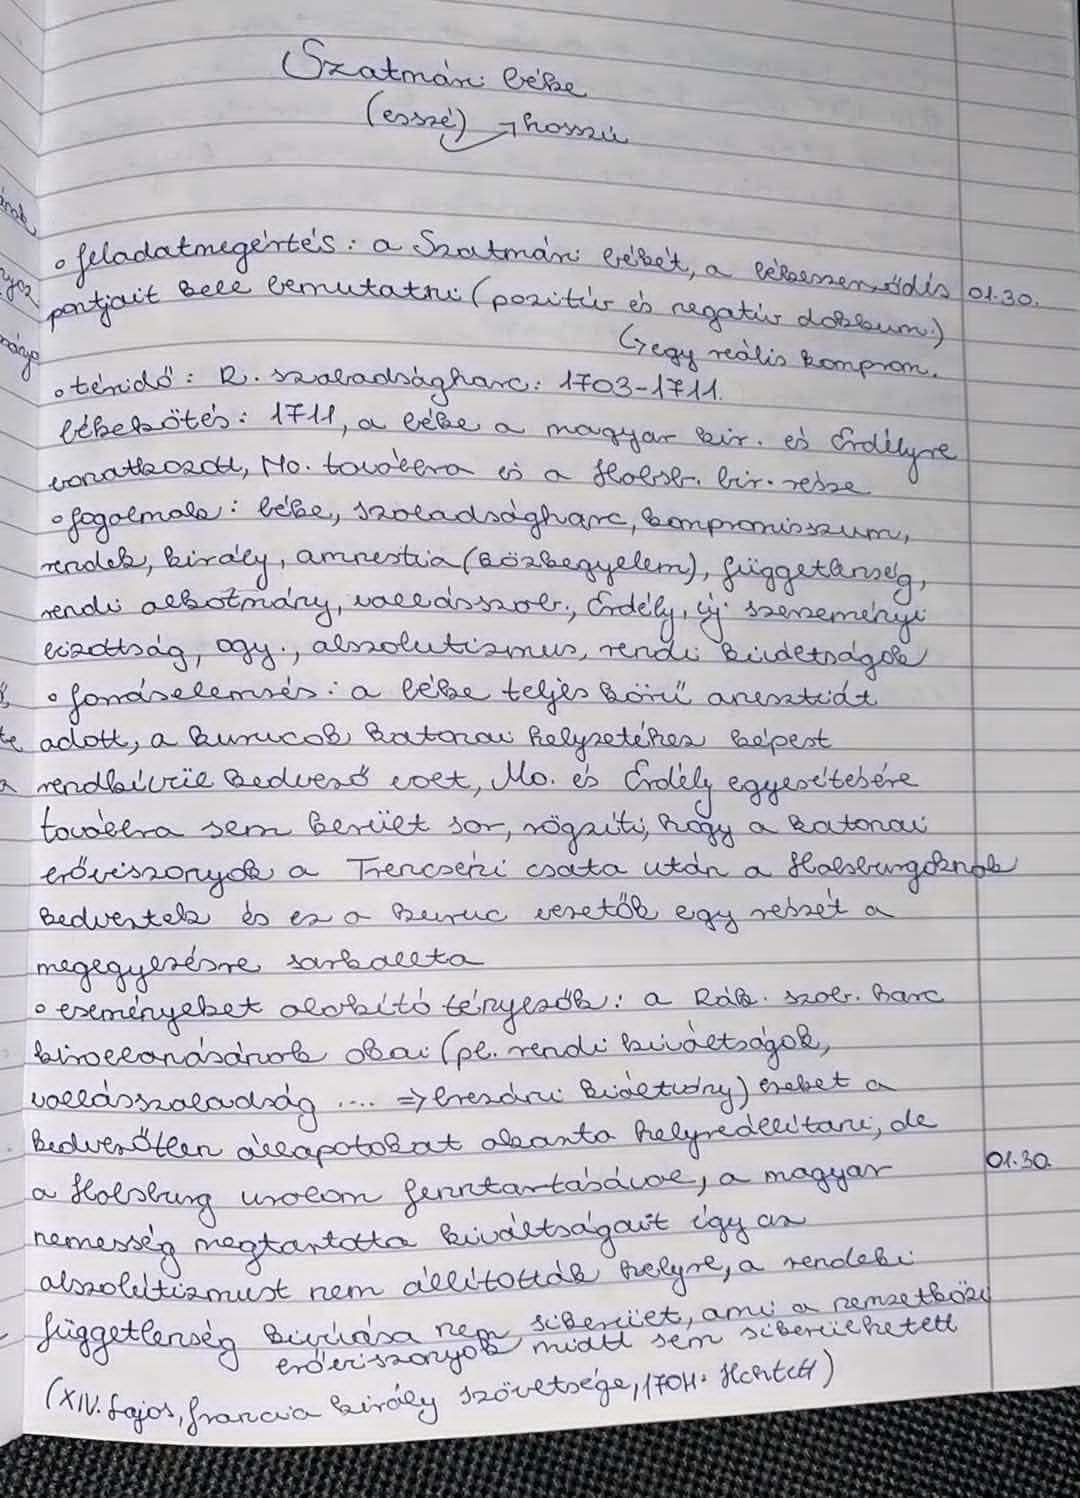 Szatmári béke
(esszé) → hosszú
∘ feladatmegértés: a Szatmári békét, a békeszerződés 01.30.
pontjait kell bemutatni (pozitív és negatív dokkum.)
↳ egy reális komprom.
∘ tér, idő: R. szabadságharc: 1703-1711.
békekötés: 1711, a béke a magyar kir. és Erdélyre
vonatkozott, Mo. továbbra is a Habsb. bir. része
∘ fogalmak: béke, szabadságharc, kompromisszum,
rendek, király, amnestia (közkegyelem), függetlenség,
rendi alkotmány, vallásszab., Erdély, új szerzeményi
bizottság, ogy., abszolutizmus, rendi kiváltságok
∘ forráselemzés: a béke teljes körű amesztiát
adott, a kurucok katonai helyzetéhez képest
rendkívül kedvező volt, Mo. és Erdély egyesítésére
továbbra sem került sor, rögzíti, hogy a katonai
erőviszonyok a Trencséni csata után a Habsburgoknak
kedveztek és ez a kuruc vezetők egy részét a
megegyezésre sarkallta
∘ eseményeket alakító tényezők: a Rák. szab. harc
kirobbanásának okai (pl. rendi kiváltságok,
vallásszabadság .... ⇒ brezáni kiáltvány) ezeket a
kedvezőtlen állapotokat akarta helyreállítani, de
a Habsburg uralom fenntartásával, a magyar 01.30.
nemesség megtartotta kiváltságait így az
abszolútizmust nem állították helyre, a rendeki
függetlenség kivívása nem sikerült, ami a nemzetközi
erőviszonyok miatt sem sikerülhetett
(XIV. Lajos, francia király szövetsége, 1704. Höchstett)